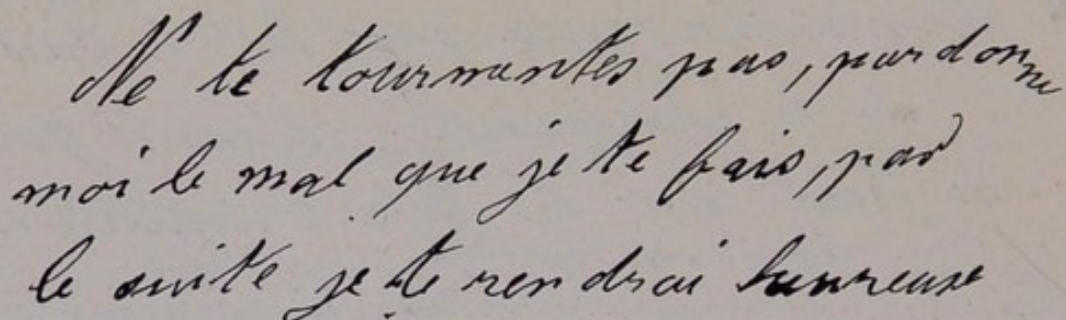 Ne te tourmentes pas, pardonne
moi le mal que je te fais, par
le suite je te rendrai heureuse